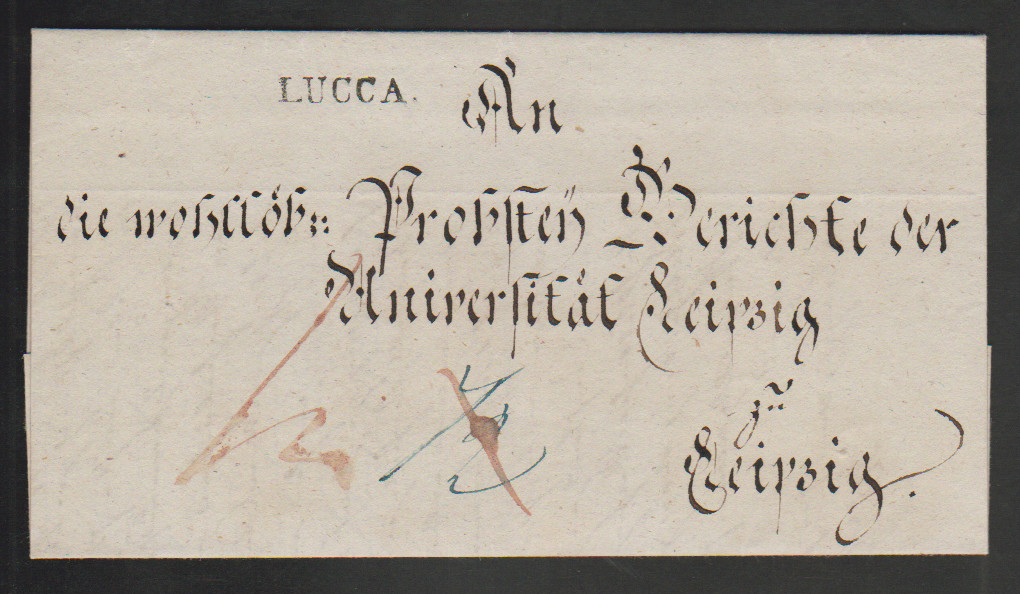 LUCCA.
An
die wohllöb:: Probstey Gerichte der
Universität Leipzig
zu
Leipzig.